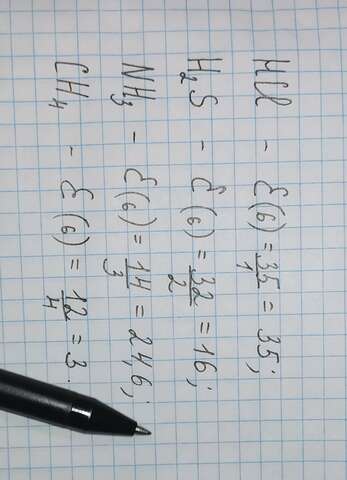 HCl - Э(б) = 35/1 = 35;
H₂S - Э(б) = 32/2 = 16;
NH₃ - Э(б) = 14/3 = 24,6;
CH₄ - Э(б) = 12/4 = 3.